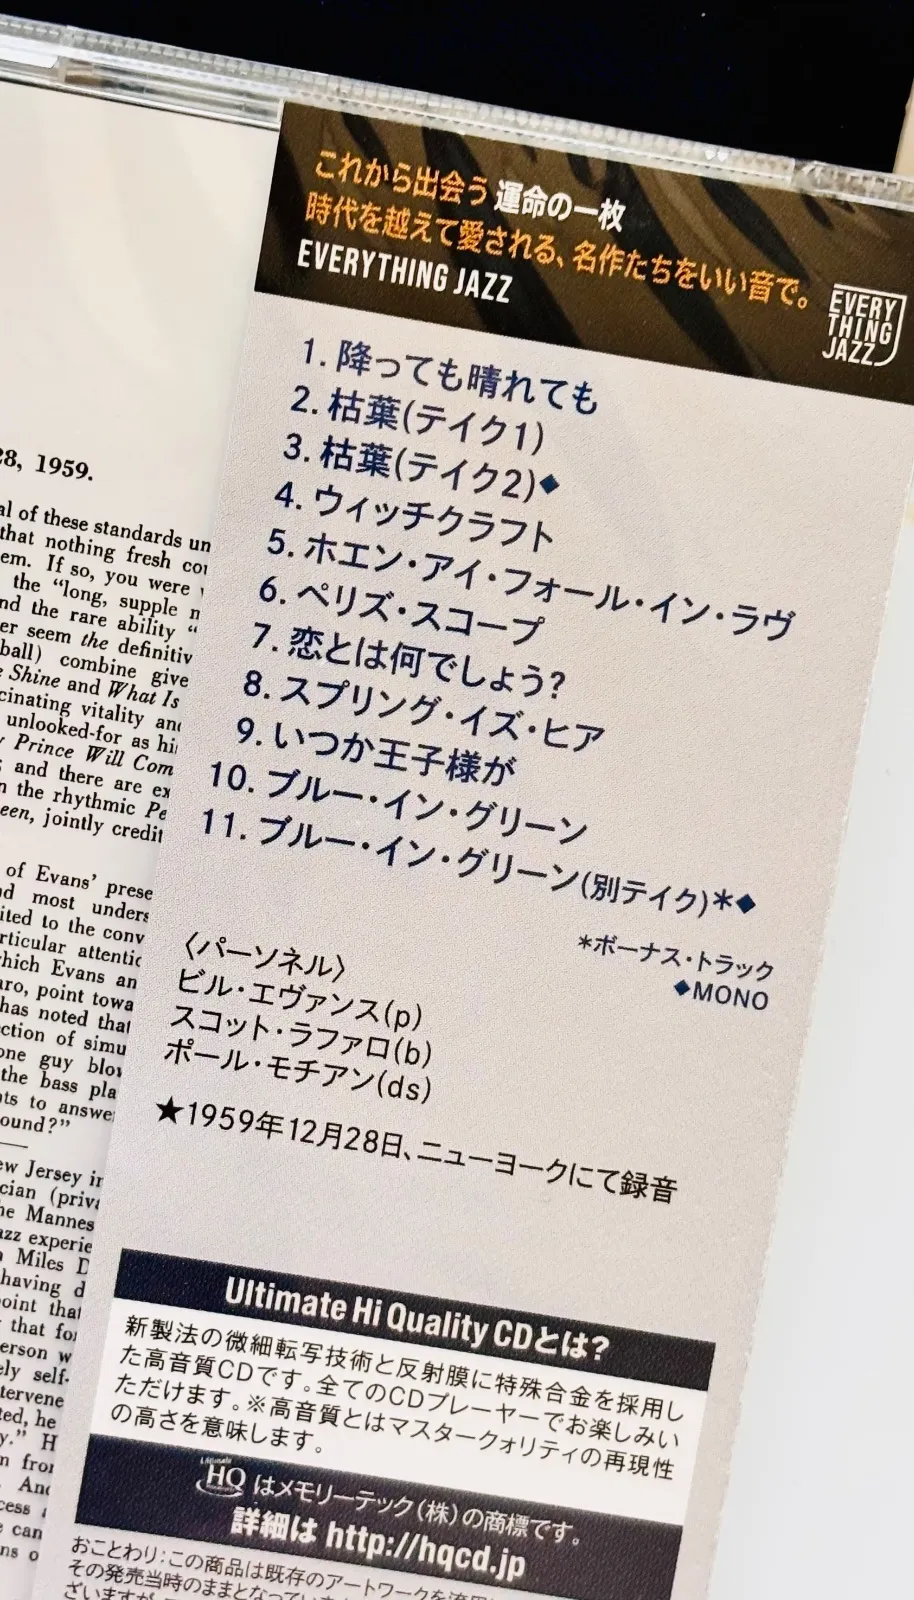 これから出会う 運命の一枚
時代を越えて愛される、名作たちをいい音で。
EVERYTHING JAZZ
EVERY
THING
JAZZ
1. 降っても晴れても
2. 枯葉(テイク1)
3. 枯葉(テイク2)◆
4. ウィッチクラフト
5. ホエン・アイ・フォール・イン・ラヴ
6. ペリズ・スコープ
7. 恋とは何でしょう?
8. スプリング・イズ・ヒア
9. いつか王子様が
10. ブルー・イン・グリーン
11. ブルー・イン・グリーン(別テイク)*◆
*ボーナス・トラック
◆MONO
〈パーソネル〉
ビル・エヴァンス(p)
スコット・ラファロ(b)
ポール・モチアン(ds)
★1959年12月28日、ニューヨークにて録音
Ultimate Hi Quality CDとは?
新製法の微細転写技術と反射膜に特殊合金を採用し
た高音質CDです。全てのCDプレーヤーでお楽しみい
ただけます。※高音質とはマスタークォリティの再現性
の高さを意味します。
Ultimate HQ はメモリーテック(株)の商標です。
詳細は http://hqcd.jp
おことわり:この商品は既存のアートワークを
その発売当時のままとなって
ざいますが
28, 1959.
of these standards
that nothing fresh
em. If so, you were
the “long, supple
the rare ability “
er seem the
ball) combine give
Shine and What Is
vitality and
unlooked-for as
Prince Will
; and there are
n the rhythmic
jointly
of Evans’
most
to the
attention
which Evans
point
has noted that
of
one guy
the bass
to answer
ound?”
Jersey in
(
Mannes
jazz
Miles
having
point that
that for
person
self-
he
y.” H
from
can